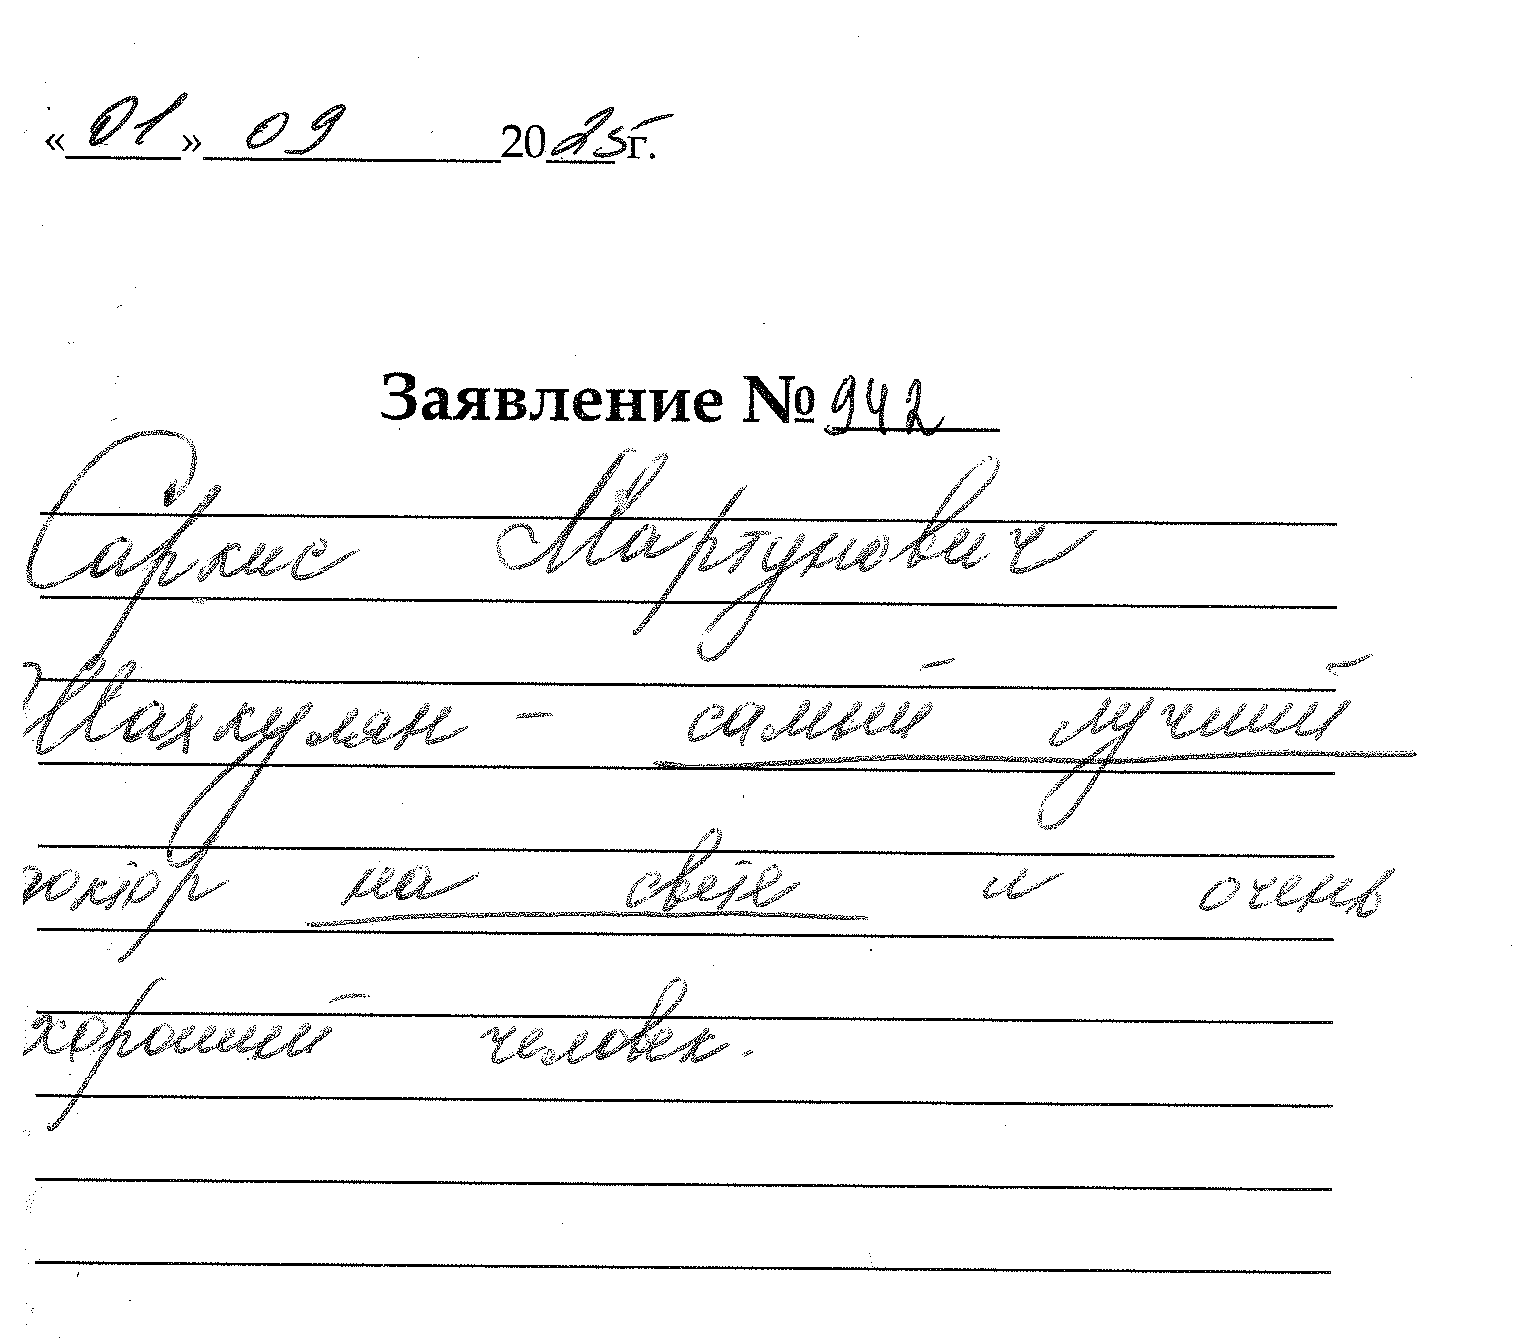 «01» 09 2025 г.
Заявление № 942
Саркис Мартунович
Шахкулян - самый лучший
доктор на свете и очень
хороший человек.